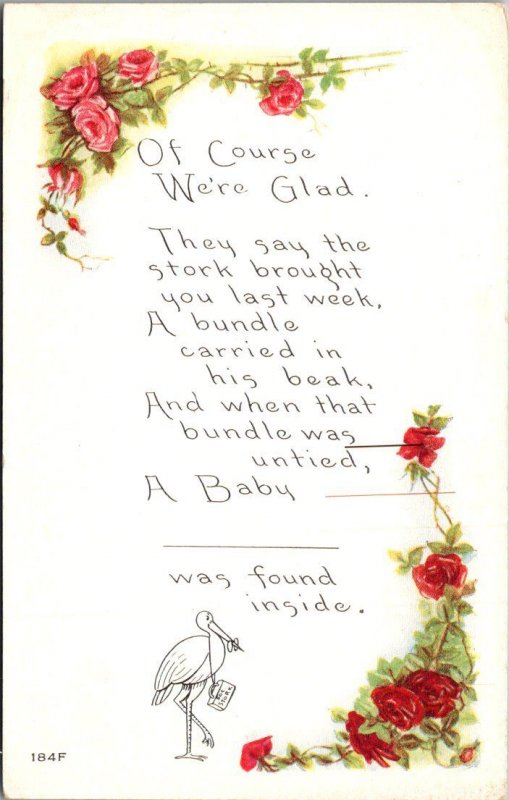 Of Course
We're Glad.
They say the
stork brought
you last week,
A bundle
carried in
his beak,
And when that
bundle was
untied,
A Baby
was found
inside.
STORK
184F